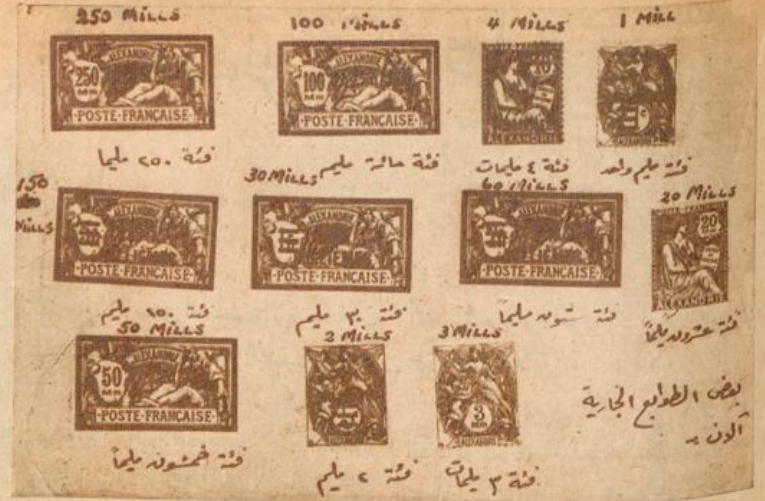 250 MILLS
100 MILLS
4 MILLS
1 MILL
ALEXANDRIE
250
POSTE FRANÇAISE
ALEXANDRIE
100
POSTE FRANÇAISE
ALEXANDRIE
فئة ٢٥٠ مليما
فئة مائة مليم
فئة ٤ مليمات
فئة مليم واحد
150
MILLS
30 MILLS
60 MILLS
20 MILLS
ALEXANDRIE
POSTE FRANÇAISE
ALEXANDRIE
POSTE FRANÇAISE
ALEXANDRIE
POSTE FRANÇAISE
20
ALEXANDRIE
فئة ١٥٠ مليم
فئة ٣٠ مليم
فئة ستون مليماً
فئة عشرون مليماً
50 MILLS
2 MILLS
3 MILLS
ALEXANDRIE
50
POSTE FRANÇAISE
3
فئة خمسون مليماً
فئة ٢ مليم
فئة ٣ مليمات
بعض الطوابع الجارية
الآن